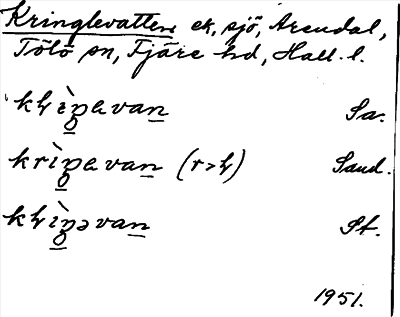 Kringlevatten ek, sjö, Arendal,
Tölö sn, Fjäre hd, Hall. l.
kһìŋ̲avan̲ Sa.
krìŋ̲avan̲ (r>һ) Sand.
kһìŋ̲əvan̲ St.
1951.